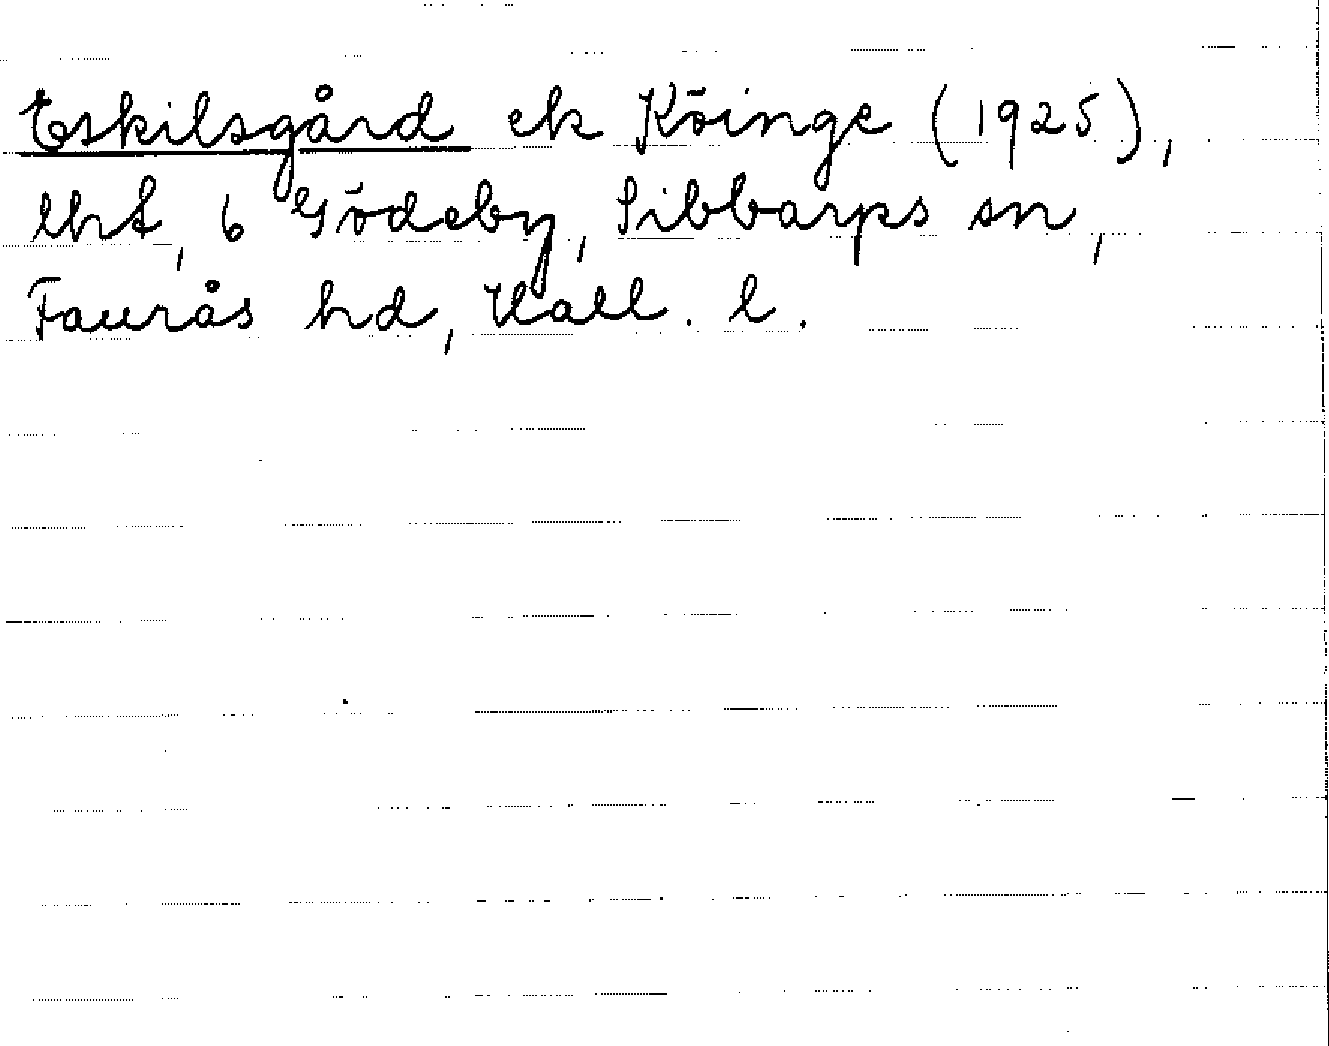 Eskilsgård ek Köinge (1925),
lht, 6 Gödeby, Sibbarps sn,
Faurås hd, Hall. l.